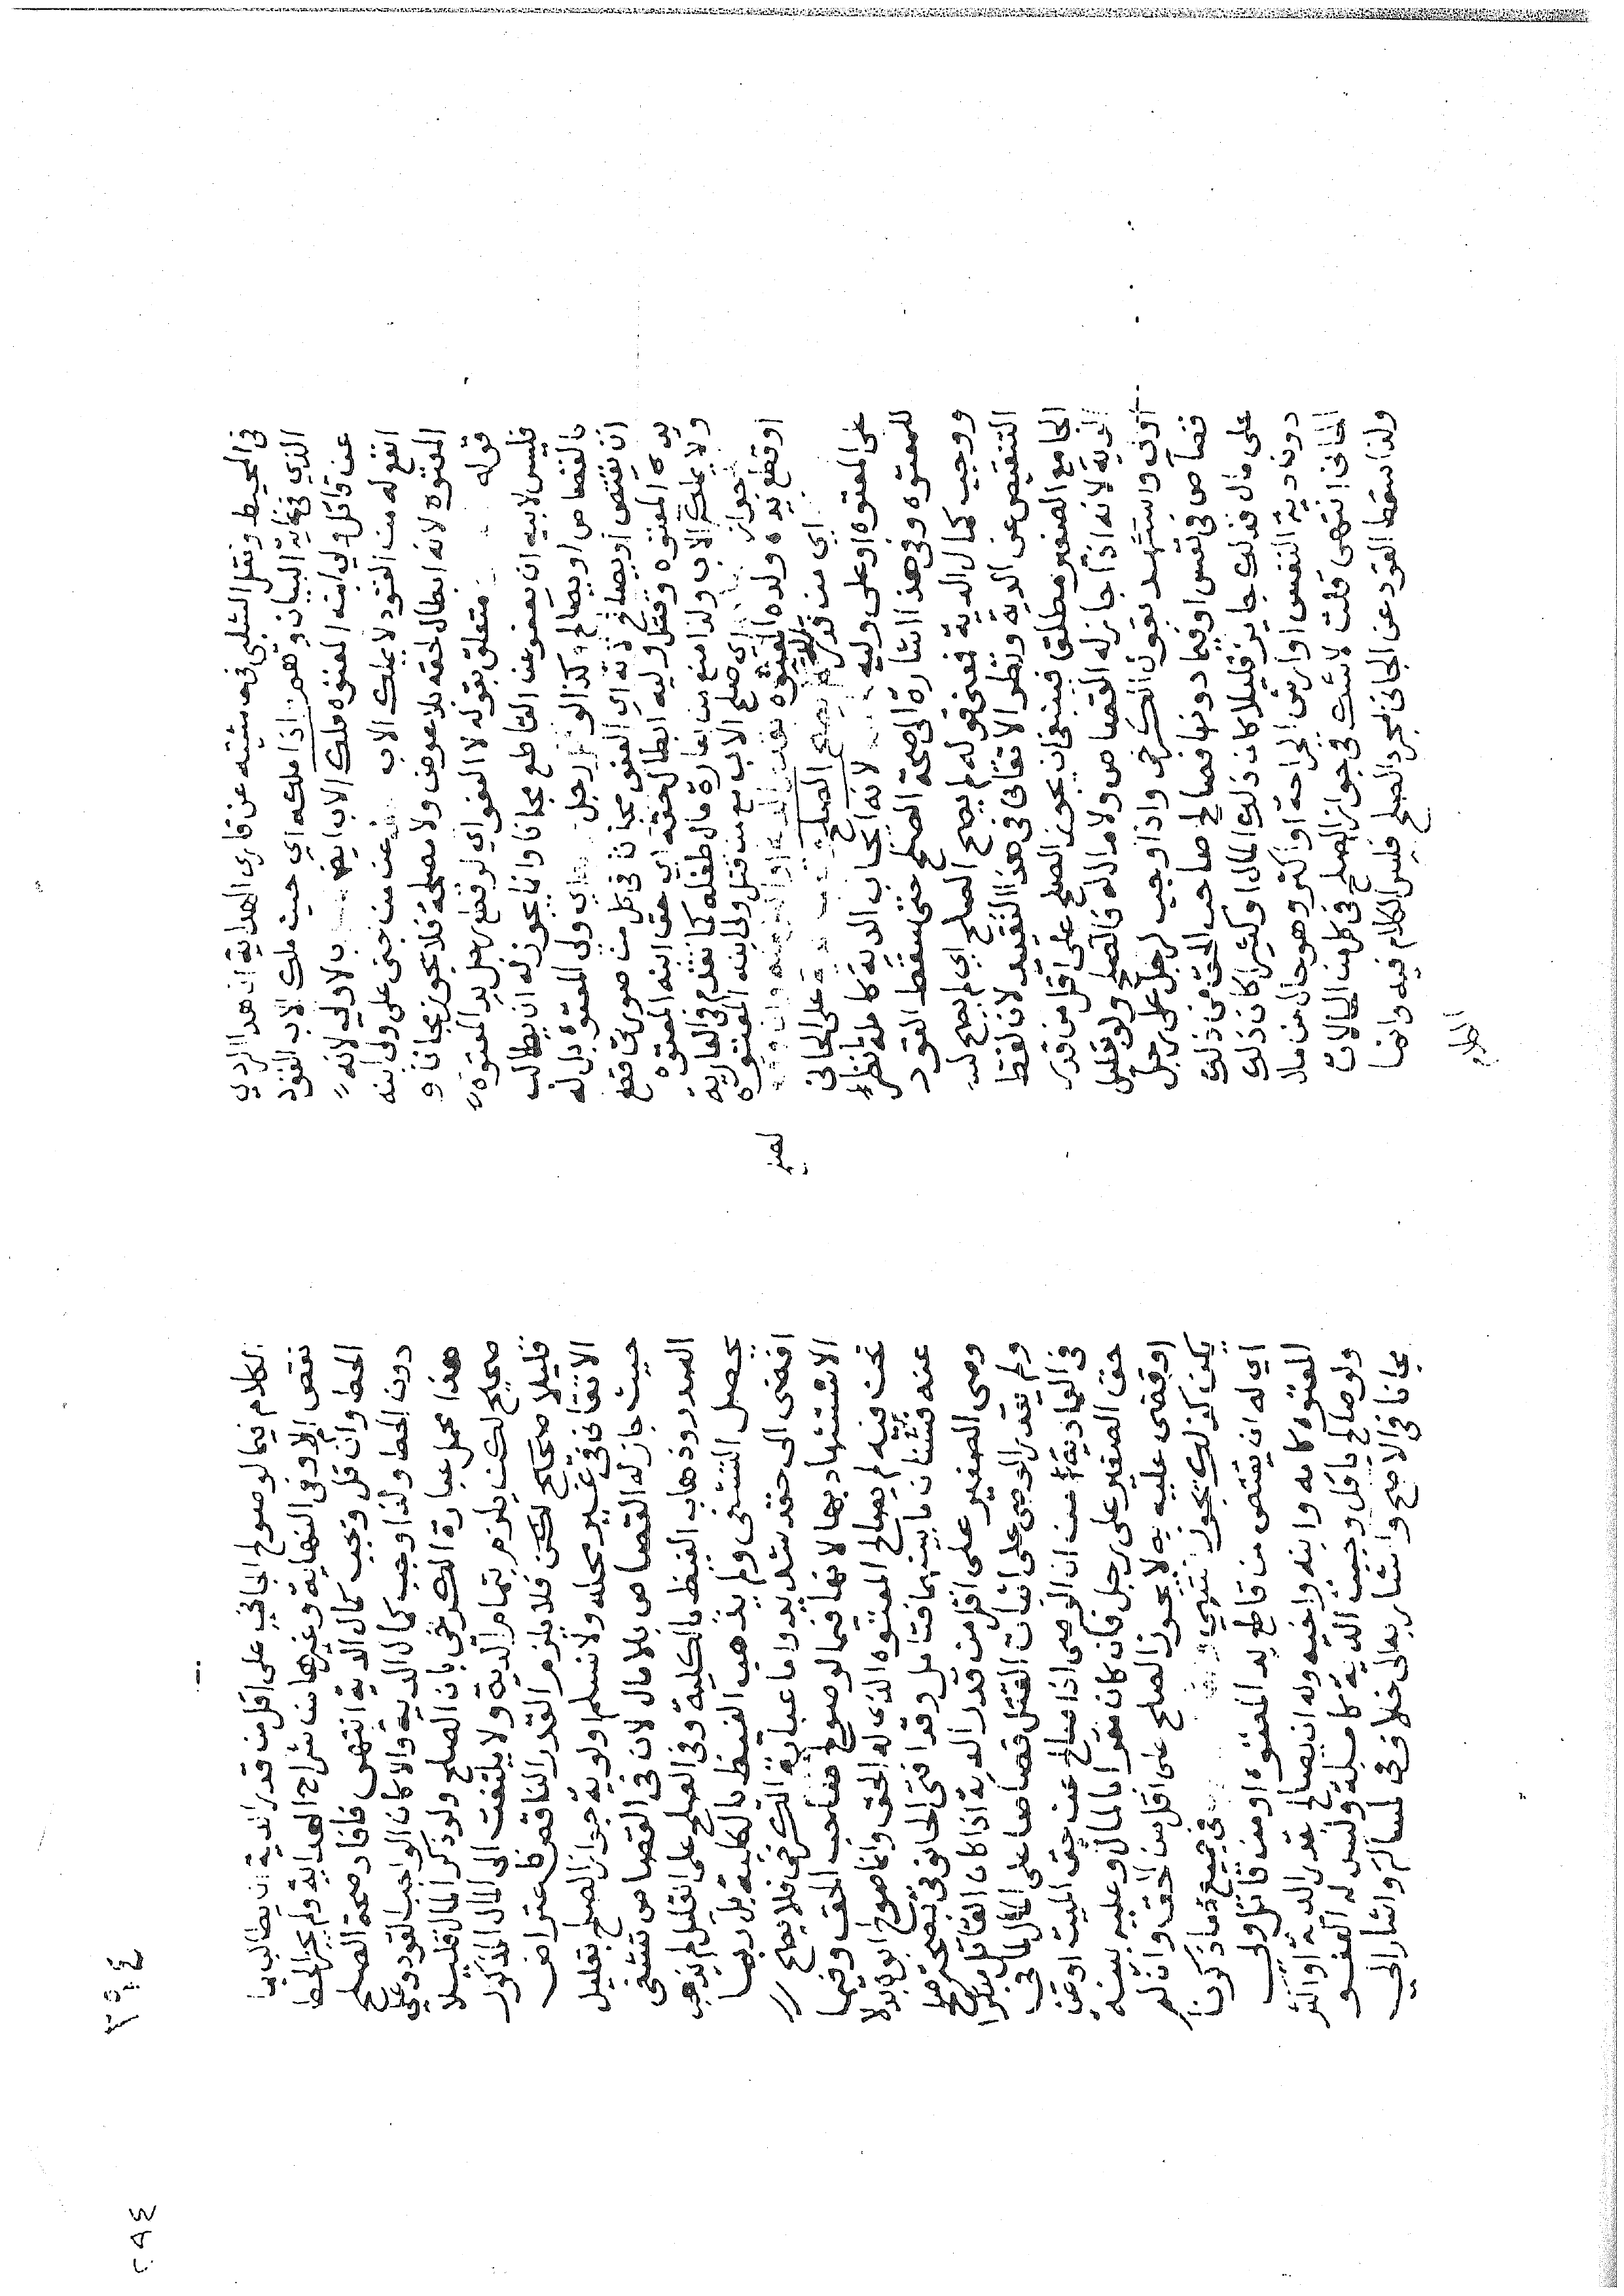 في المحيط ونقل الشلبي في حاشيته عن قاري الهداية ان هذا الردي
الذي في غاية البيان وهم اذا ملكه اي حيث ملك الاب القود
عن قاتل ولي ابنه المعتوه ملك الاب ايضا بالاولى لانه
انفع له من القود لا يملك الاب عن من جنى على ولي ابنه
المعتوه لانه ابطال لحقه بلا عوض ولا مصلحة فلا يجوز مجانا و
قوله متعلق بقوله لا العفو اي لو قطع رجل يد المعتوه
فليس لابيه ان يعفو عن القاطع مجانا وانما يجوز له ان يطالب
بالقصاص او يصالح وكذا لو رجل اي ولي المعتوه بل له
ان يقتص او يصالح لانه اي العفو مجانا في كل من صورتي قطع
يده اي المعتوه وقتل وليه ابطال لحقه اي حق ابنه المعتوه
ولا يملك الاب ولذا منع من اعارة مال طفله كما تقدم في العارية
جواز اي صلح الاب مع من قتل ولي ابنه المعتوه
او قطع يده ولده المعتوه بقدر الدية او اكثر منه وان وقع
اي من قدر الدية لم يصح الصلح على الجاني
على المعتوه او على وليه لانه ايجاب الدية كاملة نظرا
للمعتوه وفي هذا اشارة الى صحة الصلح حتى سقط القود
ووجب كمال الدية فمعنى قوله لم يصح الصلح اي لم يصح له
التنقيص عن الدية ونظر الاتقاني في هذا التقييد لان لفظ
الجامع الصغير مطلق فينبغي ان يجوز الصلح على اقل من قدر
الدية لانه اذا جاز له القصاص ولا مال له فالصلح ولو بقليل
اولى واستشهد بقول الكرخي واذا وجب لرجل على رجل
قصاص في نفس او فيما دونها فصالح صاحب الحق من ذلك
على مال فذلك جايز قليلا كان ذلك المال او كثيرا كان ذلك
دون دية النفس او ارش الجراحة او اكثر وهو حال من مال
الجاني انتهى قلت لا شك في جواز الصلح في كل من الحالات
ولذا سقط القود عن الجاني بمجرد الصلح فليس الكلام فيه وانما
الكلام
الكلام فيما لو صولح الجاني على اقل من قدر الدية ان يطالب بما
نقص اولا وفي النهاية وغيرها من شراح الهداية ولم يجز الحط
الحط وان قل وتجب كمال الدية انتهى فافاد صحة الصلح
دون الحط ولذا وجب كمال الدية والا لكان الواجب القود وعلى
هذا يحمل عبارة الكرخي بان الصلح ولو ذكر المال قليلا
صحيح لكن يلزم بتمام الدية ولا يلتفت الى المال المذكور
قليلا صحيح لكن فلا يلزم القدر الناقص فاعتراض
الاتقاني في غير محله ولا نسلم اولوية جواز الصلح بقليل
حيث جاز له القصاص بلا مال لان في القصاص تشفى
الصدر وذهاب الغيظ بالكلية وفي الصلح على القليل لم يذهب
يحصل التشفي ولم يذهب الغيظ بالكلية بل ربما
افضى الى حقد شديد واما عبارة الكرخي فلا يصح
الاستشهاد بها لانها فيما لو صولح صاحب الحق وفيما
نحن فيه لم يصالح المعتوه الذي له الحق وانما صولح ابوه بدلا
عنه فشتان ما بينهما فتامل وقد افتى الحانوتي بصحة صلح
وصي الصغير على اقل من قدر الدية اذا كان القاتل منكرا
ولم يقدر الوصي على اثبات القتل قصاصا على المال لما في
في العمادية من ان الوصي اذا صالح عن حق الميت او عن
حق الصغير على رجل فان كان مقرا بالمال او عليه بينة
او قضى عليه به لا يجوز الصلح على اقل من الحق وان لم
يكن كذلك يجوز انتهى في جميع ما ذكرنا
اي له ان يقتص من قاطع يد المعتوه او من قاتل ولي
المعتوه كامه وابنه واخيه وله ان يصالح بقدر الدية او اكثر
ولو صالح باقل وجبت الدية كاملة وليس له العفو
مجانا في الاصح واشار به الى خلاف في المسالة واشار الى
٢٩٤